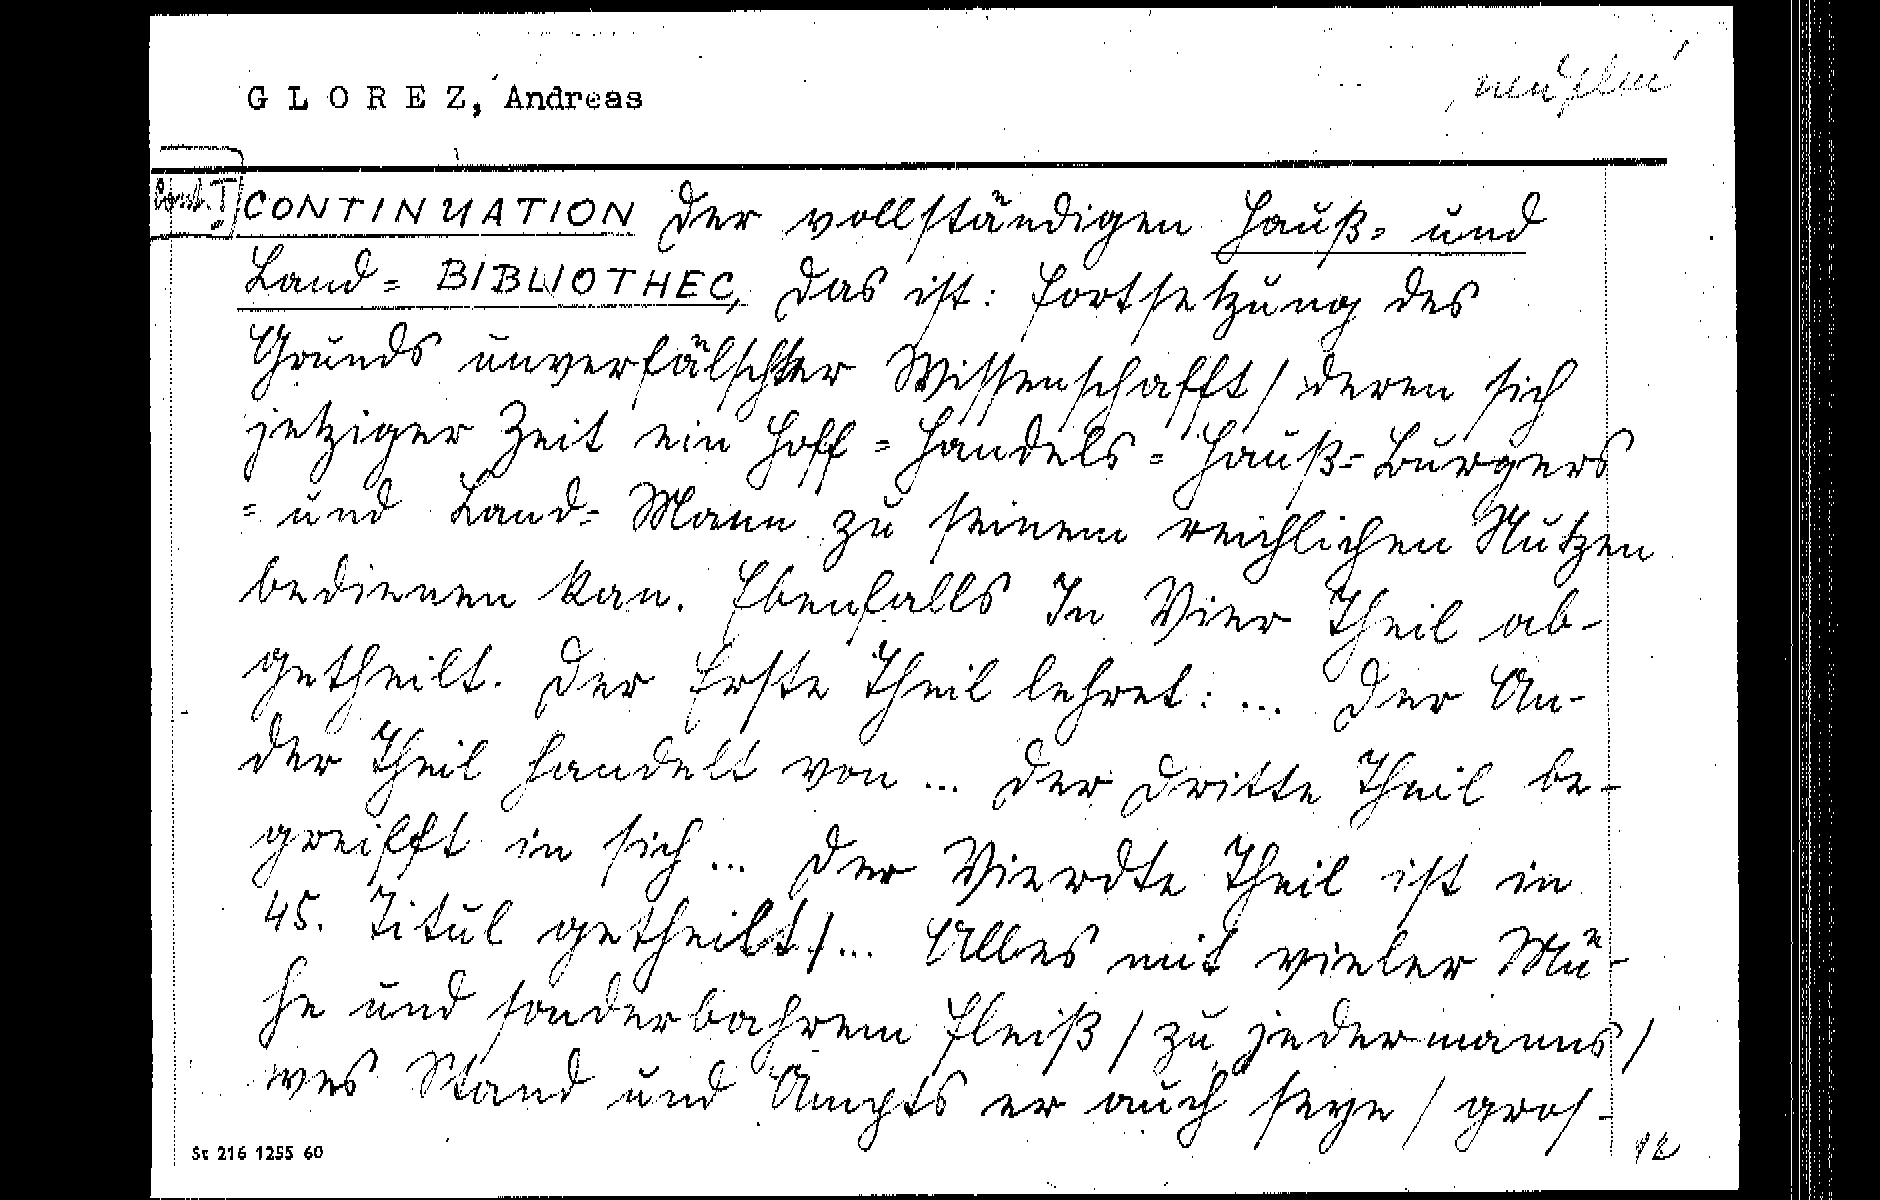 GLOREZ, Andreas
Cont. I
CONTINUATION Der vollständigen Hauß= und
Land= BIBLIOTHEC, Das ist: Fortsetzung des
Grunds unverfälschter Wissenschafft / deren sich
jetziger Zeit ein Hoff = Handels = Hauß= Burgers
= und Land= Mann zu seinem reichlichen Nutzen
bedienen kan. Ebenfalls In Vier Theil ab-
getheilt. Der Erste Theil lehret: ... Der An-
der Theil handelt von ... Der Dritte Theil be-
greifft in sich ... Der Vierdte Theil ist in
45. Titul getheilt / ... Alles mit vieler Mü-
he und sonderbahrem Fleiß / zu jedermanns /
wes Stand und Ampts er auch seye / gros-
St 216 1255 60